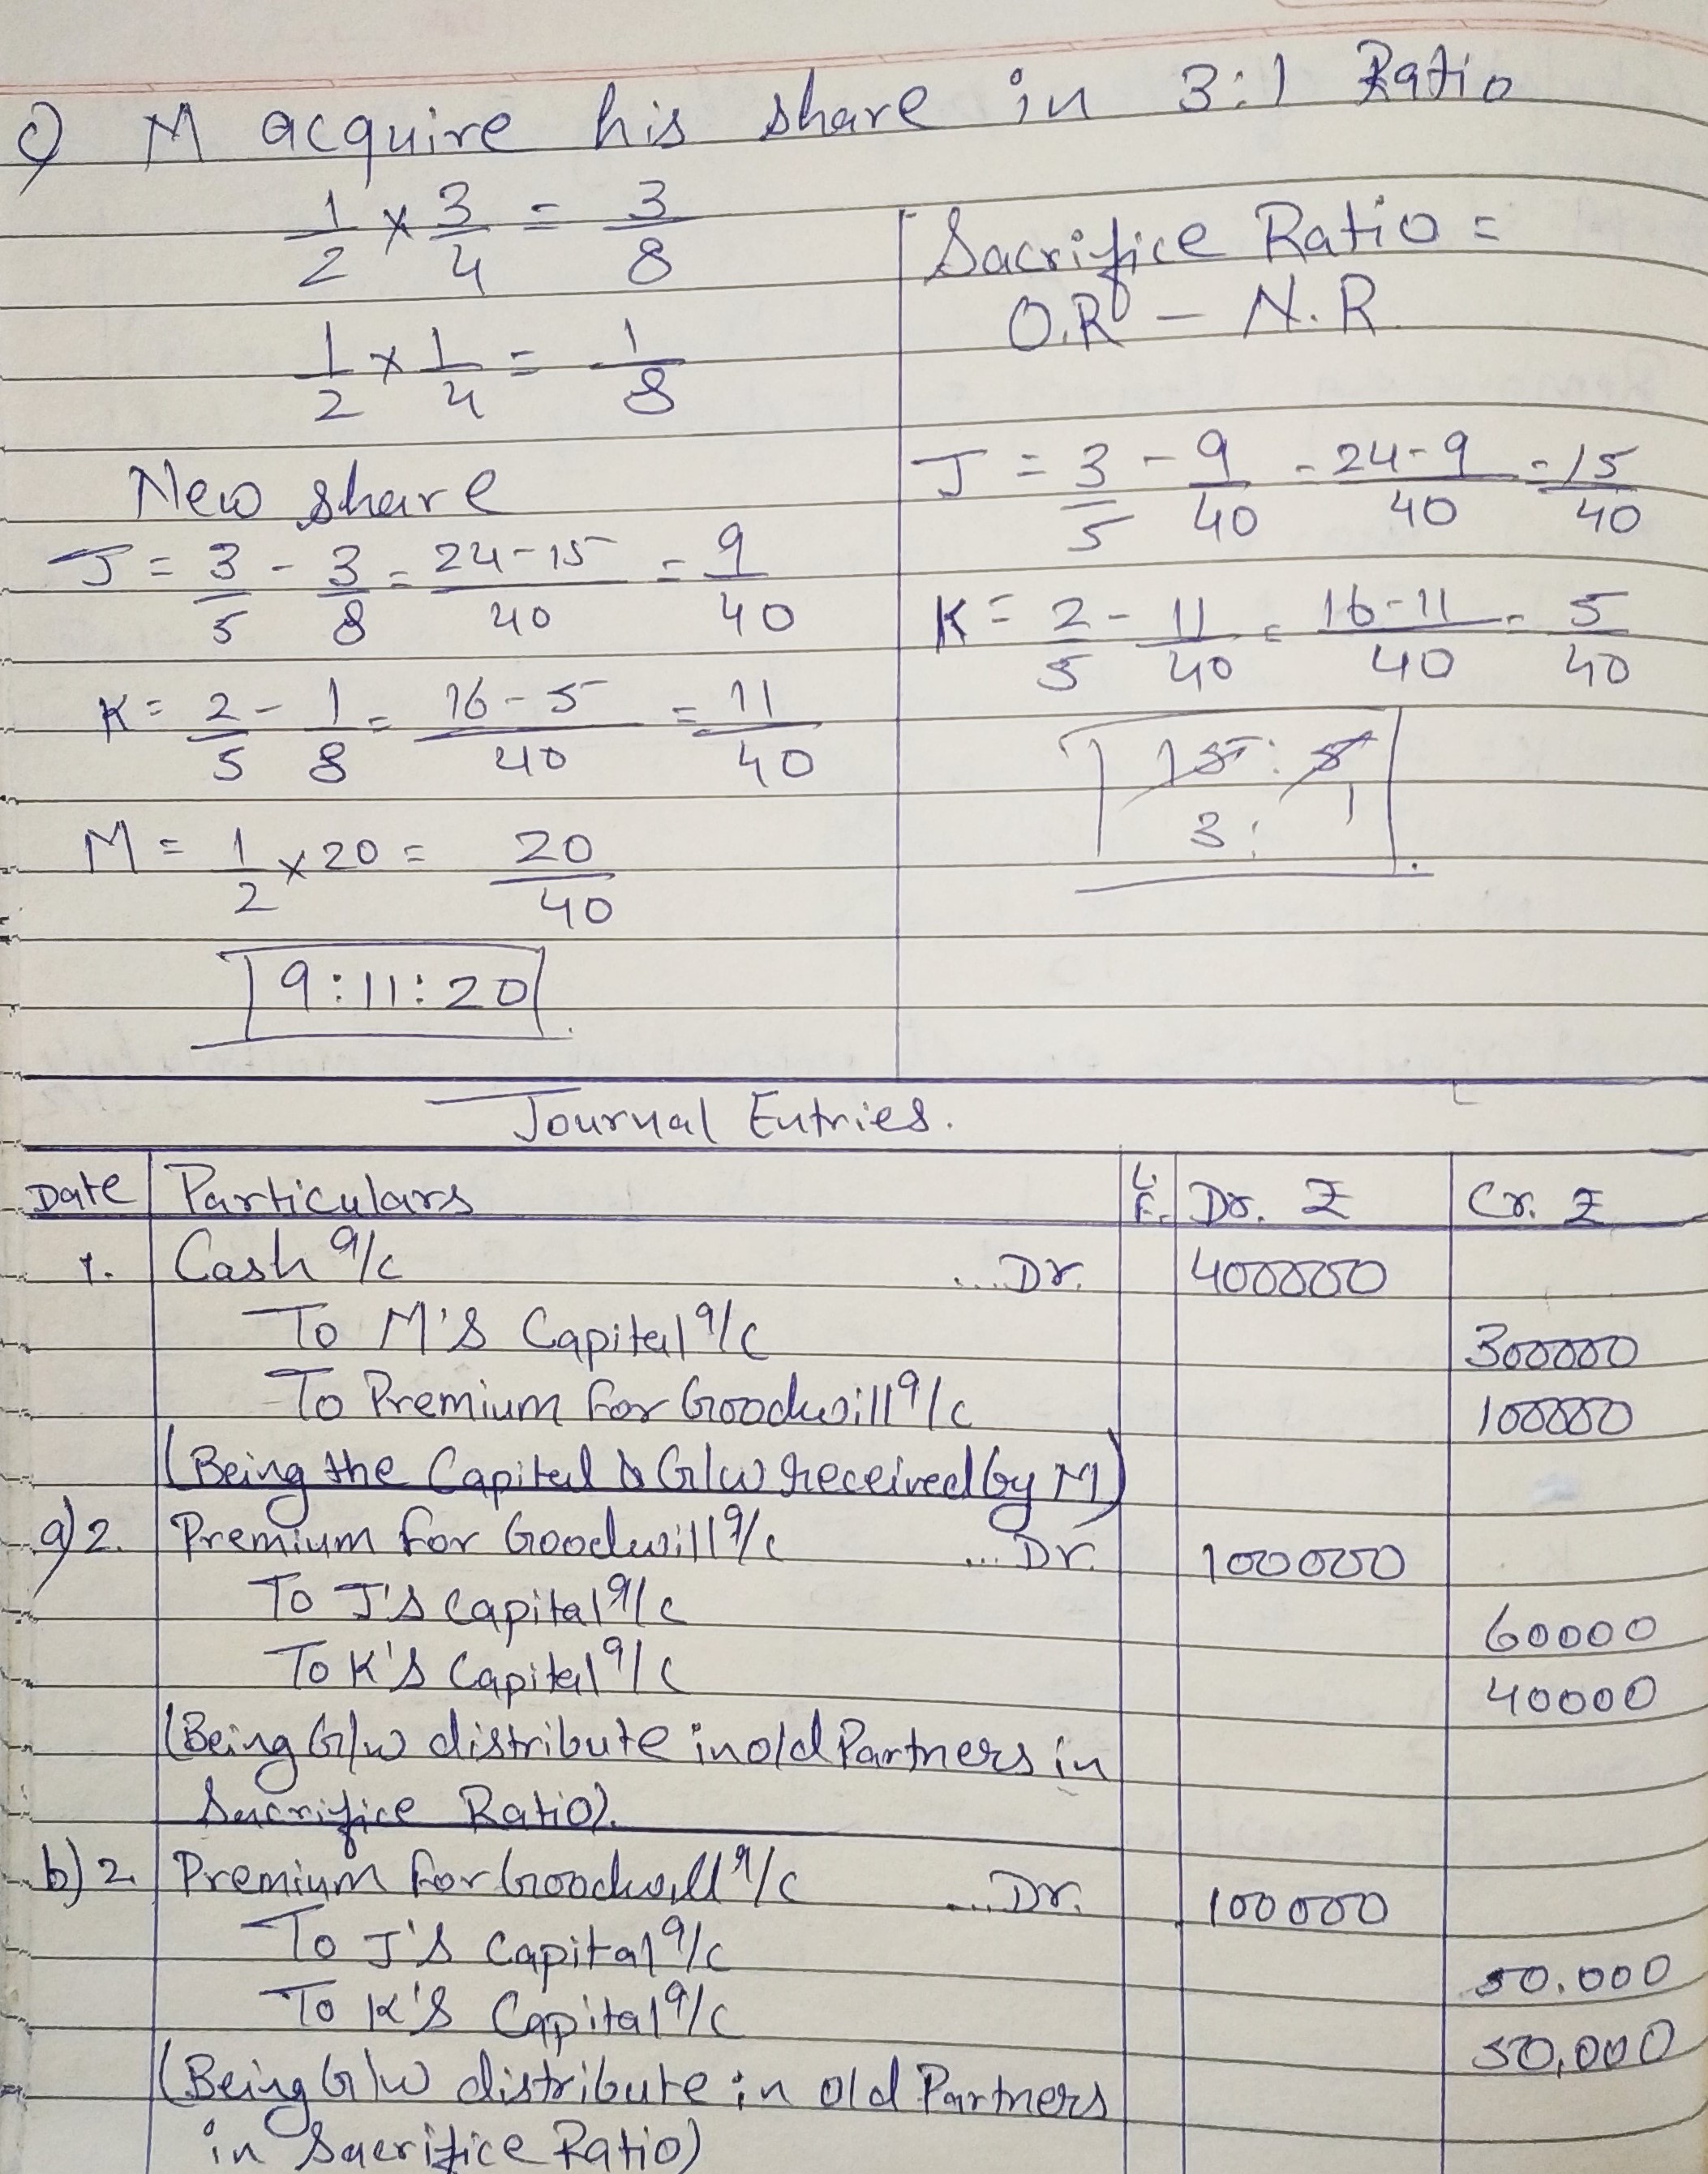 c) M acquire his share in 3:1 Ratio
1/2 × 3/4 = 3/8
1/2 × 1/4 = 1/8
New share
J = 3/5 - 3/8 = 24-15/40 = 9/40
K = 2/5 - 1/8 = 16-5/40 = 11/40
M = 1/2 × 20 = 20/40
9:11:20
Sacrifice Ratio =
O.R - N.R.
J = 3/5 - 9/40 = 24-9/40 = 15/40
K = 2/5 - 11/40 = 16-11/40 = 5/40
15 : 5
3 : 1
Journal Entries.
Date Particulars L.F. Dr. ₹ Cr. ₹
1. Cash a/c ...Dr. 400000
To M's Capital a/c 300000
To Premium for Goodwill a/c 100000
(Being the Capital & G/w received by M)
a) 2. Premium for Goodwill a/c ...Dr. 100000
To J's Capital a/c 60000
To K's Capital a/c 40000
(Being G/w distribute in old Partners in
Sacrifice Ratio).
b) 2. Premium for Goodwill a/c ...Dr. 100000
To J's Capital a/c 50.000
To K's Capital a/c 50,000
(Being G/w distribute in old Partners
in Sacrifice Ratio)